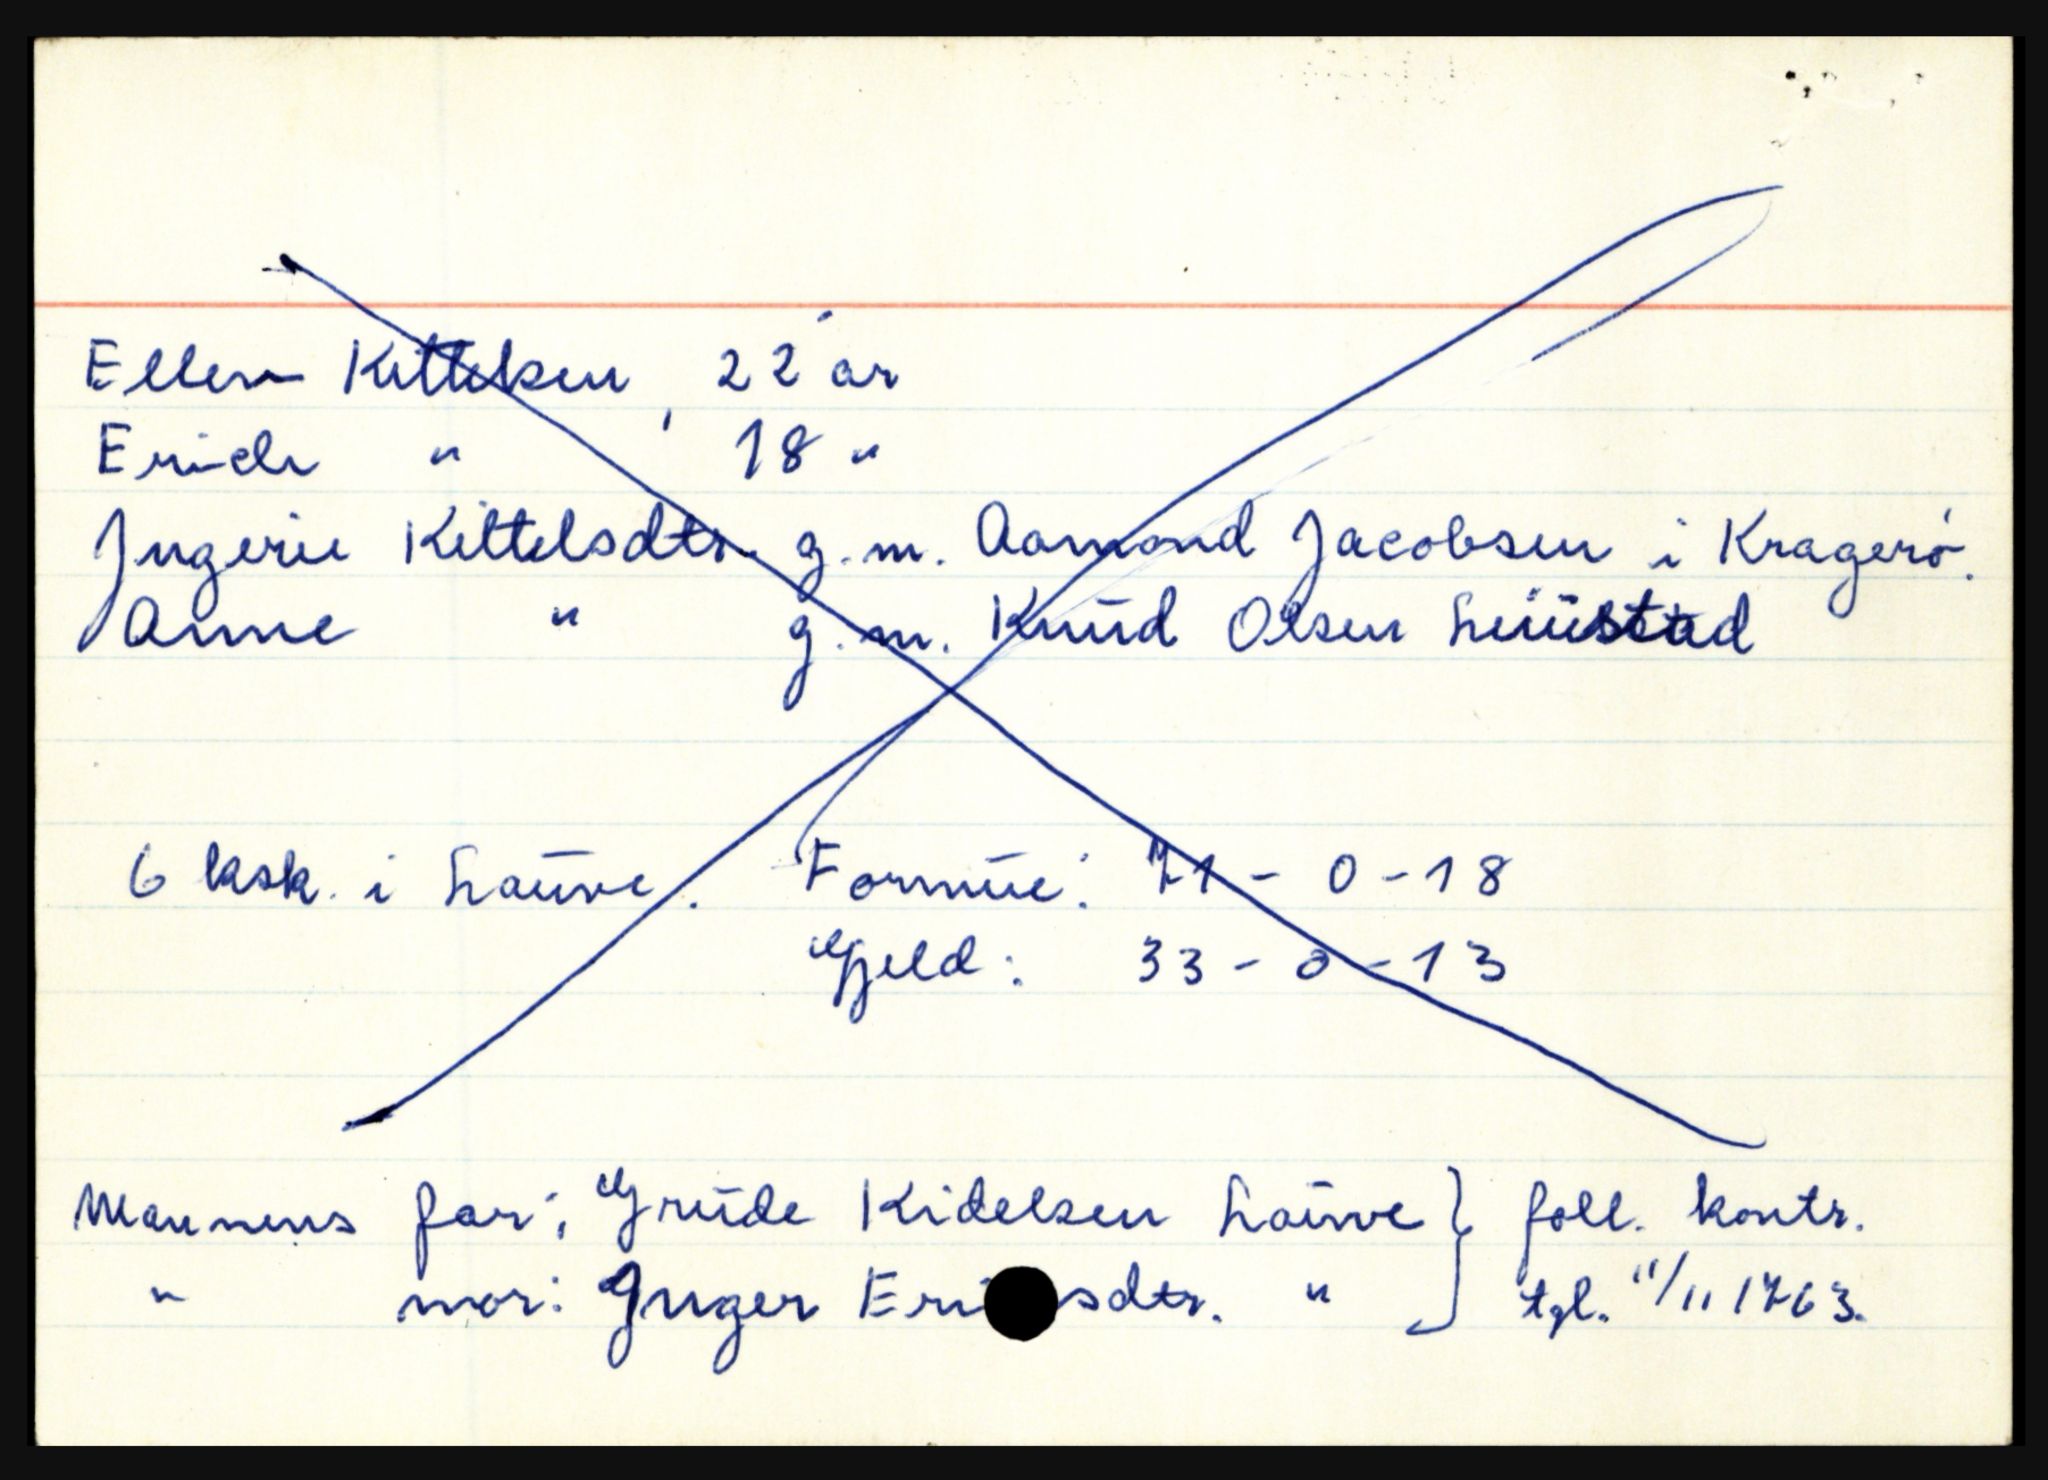 Ellen Kittelsen, 22 år
Erich " 18 "
Ingerie Kittelsdtr. g.m. Aamond Jacobsen i Kragerö.
Anne " g.m. Knud Olsen
6 ksk. i Lauve. Formue: 71-0-18
Gjeld: 33-0-13
Mannens far: Grude Kidelsen Lauve } foll. kontr.
" mor: Inger Eri sdtr. " } tgl. 11/11 1763.